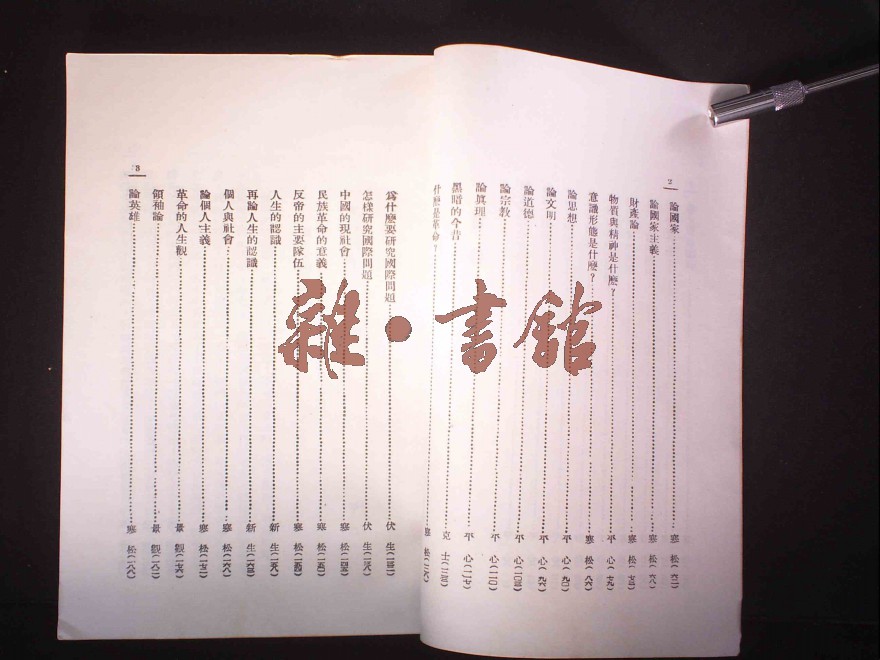 2
論國家 寒松(六二)
論國家主義 寒松(六八)
財產論 寒松(七三)
物質與精神是什麼？ 平心(七九)
意識形態是什麼？ 寒松(八六)
論思想 平心(九〇)
論文明 平心(九六)
論道德 平心(一〇三)
論宗教 平心(一一〇)
論眞理 平心(一一七)
黑暗的今昔 克士
什麼是革命 寒松
3
爲什麼要研究國際問題 伏生
怎樣研究國際問題 伏生
中國的現社會 寒松
民族革命的意義 寒松(一五〇)
反帝的主要隊伍 寒松
人生的認識 新生
再論人生的認識 新生(一六三)
個人與社會 寒松(一六八)
論個人主義 寒松(一七二)
革命的人生觀 景觀(一七六)
領袖論 景觀(一八二)
論英雄 寒松(一八八)
雜·書館